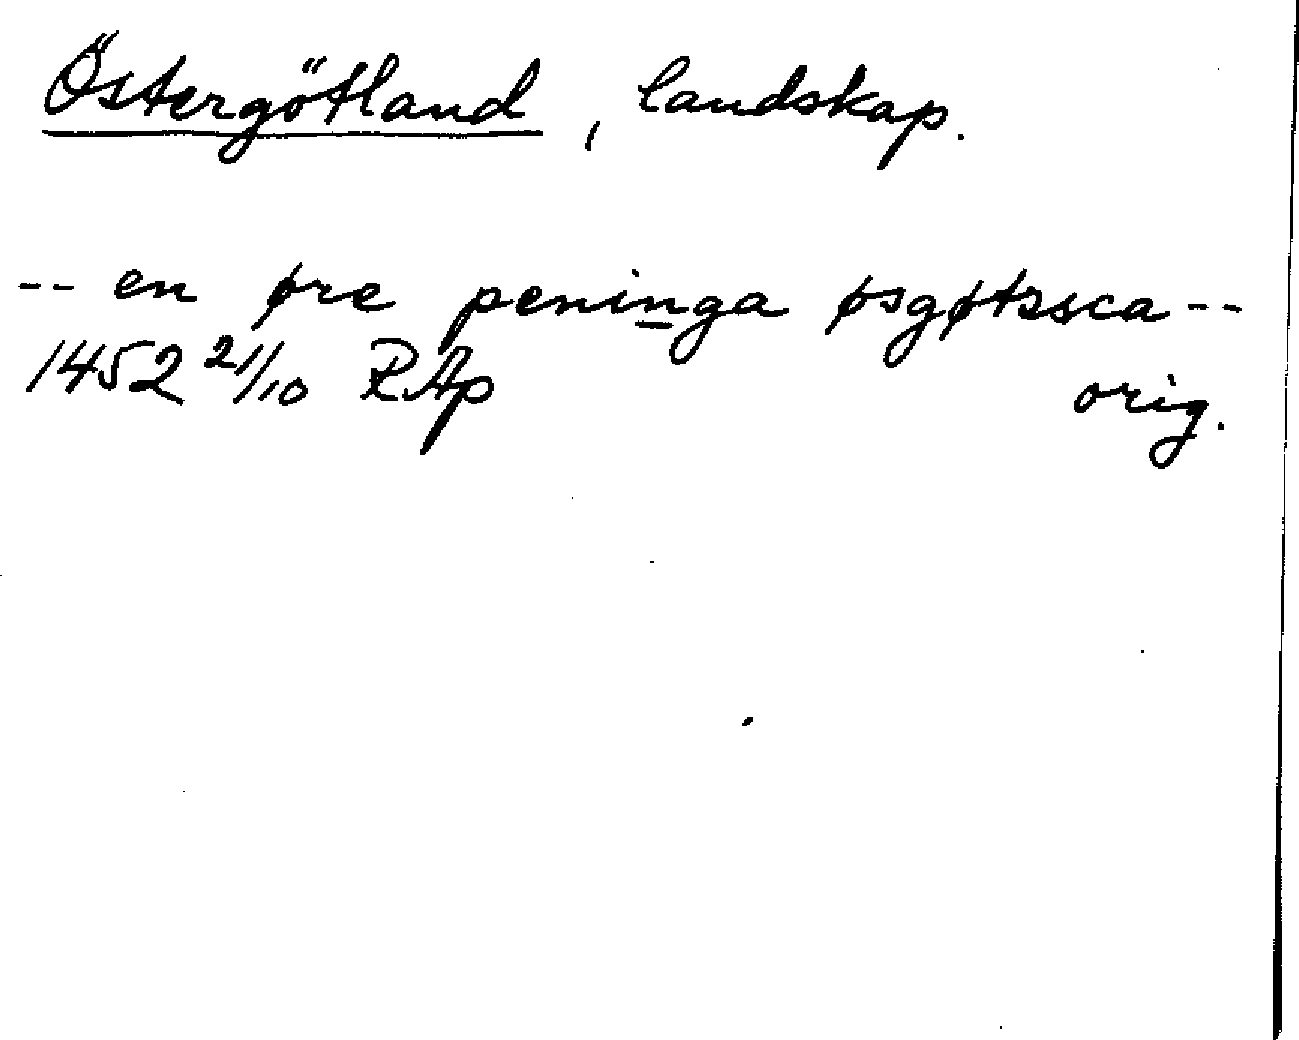 Östergötland, landskap.
-- en øre peninga øsgøtssca --
1452 21/10 RAp orig.